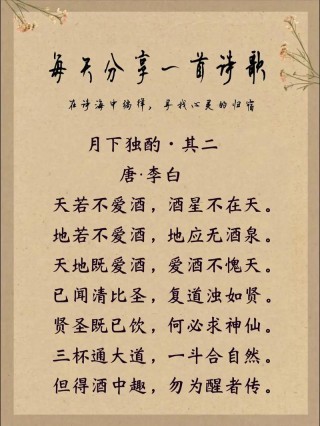 每天分享一首诗歌
在诗海中徜徉，寻找心灵的归宿
月下独酌·其二
唐·李白
天若不爱酒，酒星不在天。
地若不爱酒，地应无酒泉。
天地既爱酒，爱酒不愧天。
已闻清比圣，复道浊如贤。
贤圣既已饮，何必求神仙。
三杯通大道，一斗合自然。
但得酒中趣，勿为醒者传。